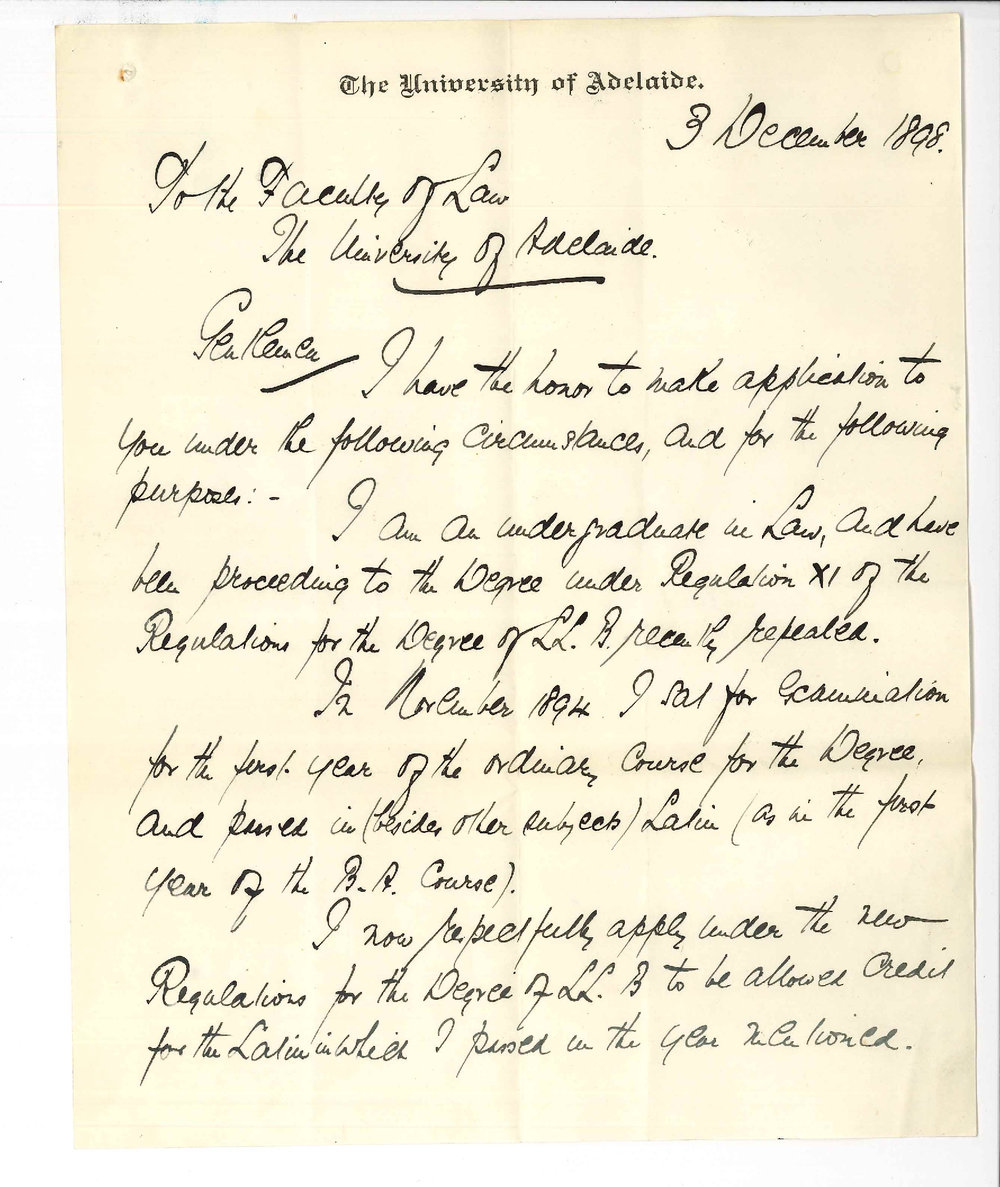 The University of Adelaide.
3 December 1898.
To the Faculty of Law
The University of Adelaide.
Gentlemen
I have the honor to make application to
you under the following circumstances, and for the following
purposes: -
I am an undergraduate in Law, and have
been proceeding to the Degree under Regulation XI of the
Regulations for the Degree of LL. B. recently repealed.
In November 1894 I sat for Examination
for the first year of the ordinary Course for the Degree,
and passed in (besides other subjects) Latin (as in the first
year of the B.A. Course).
I now respectfully apply under the new
Regulations for the Degree of LL. B to be allowed Credit
for the Latin in which I passed in the year mentioned.